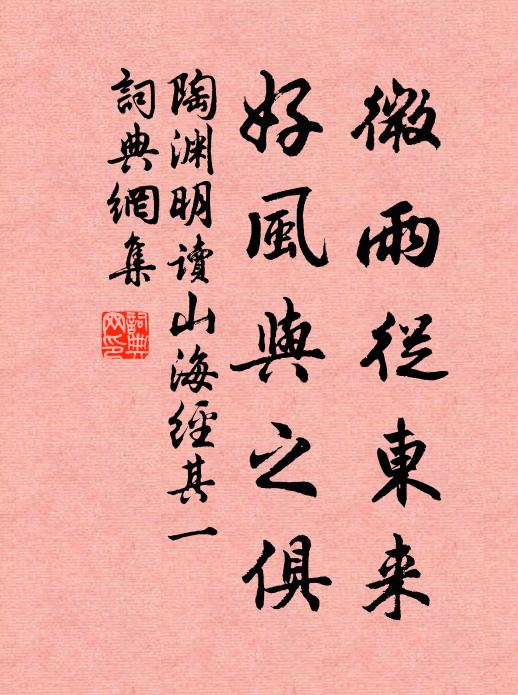 微雨從東来
好風與之俱
陶渊明讀山海經其一
詞典網集
詞典
网印